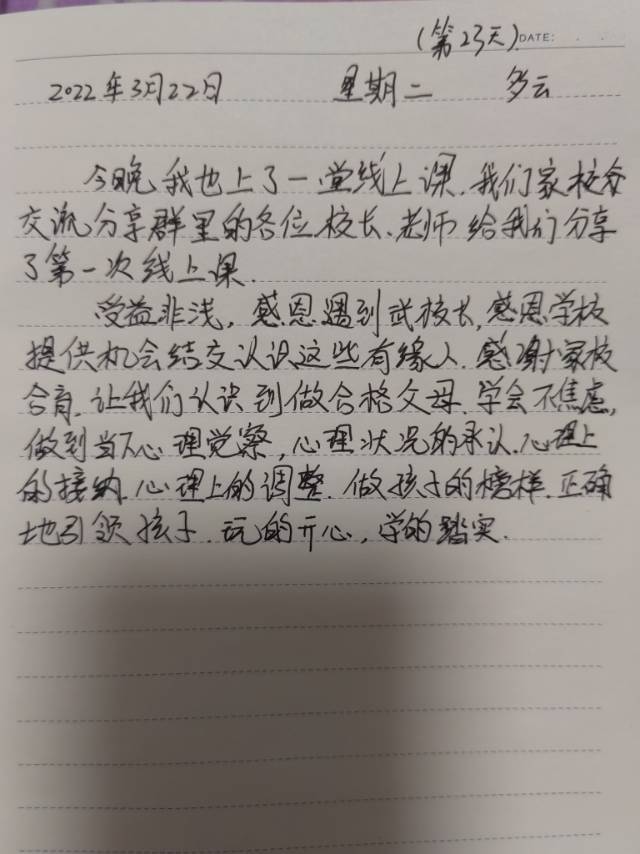 (第23天) DATE:
2022年3月22日 星期二 多云
今晚我也上了一堂线上课.我们家校合
交流分享群里的各位校长、老师给我们分享
了第一次线上课.
受益非浅,感恩遇到武校长,感恩学校
提供机会结交认识这些有缘人.感谢家校
合育.让我们认识到做合格父母.学会不焦虑,
做到当下心理觉察,心理状况的承认.心理上
的接纳.心理上的调整.做孩子的榜样.正确
地引领孩子.玩的开心,学的踏实.